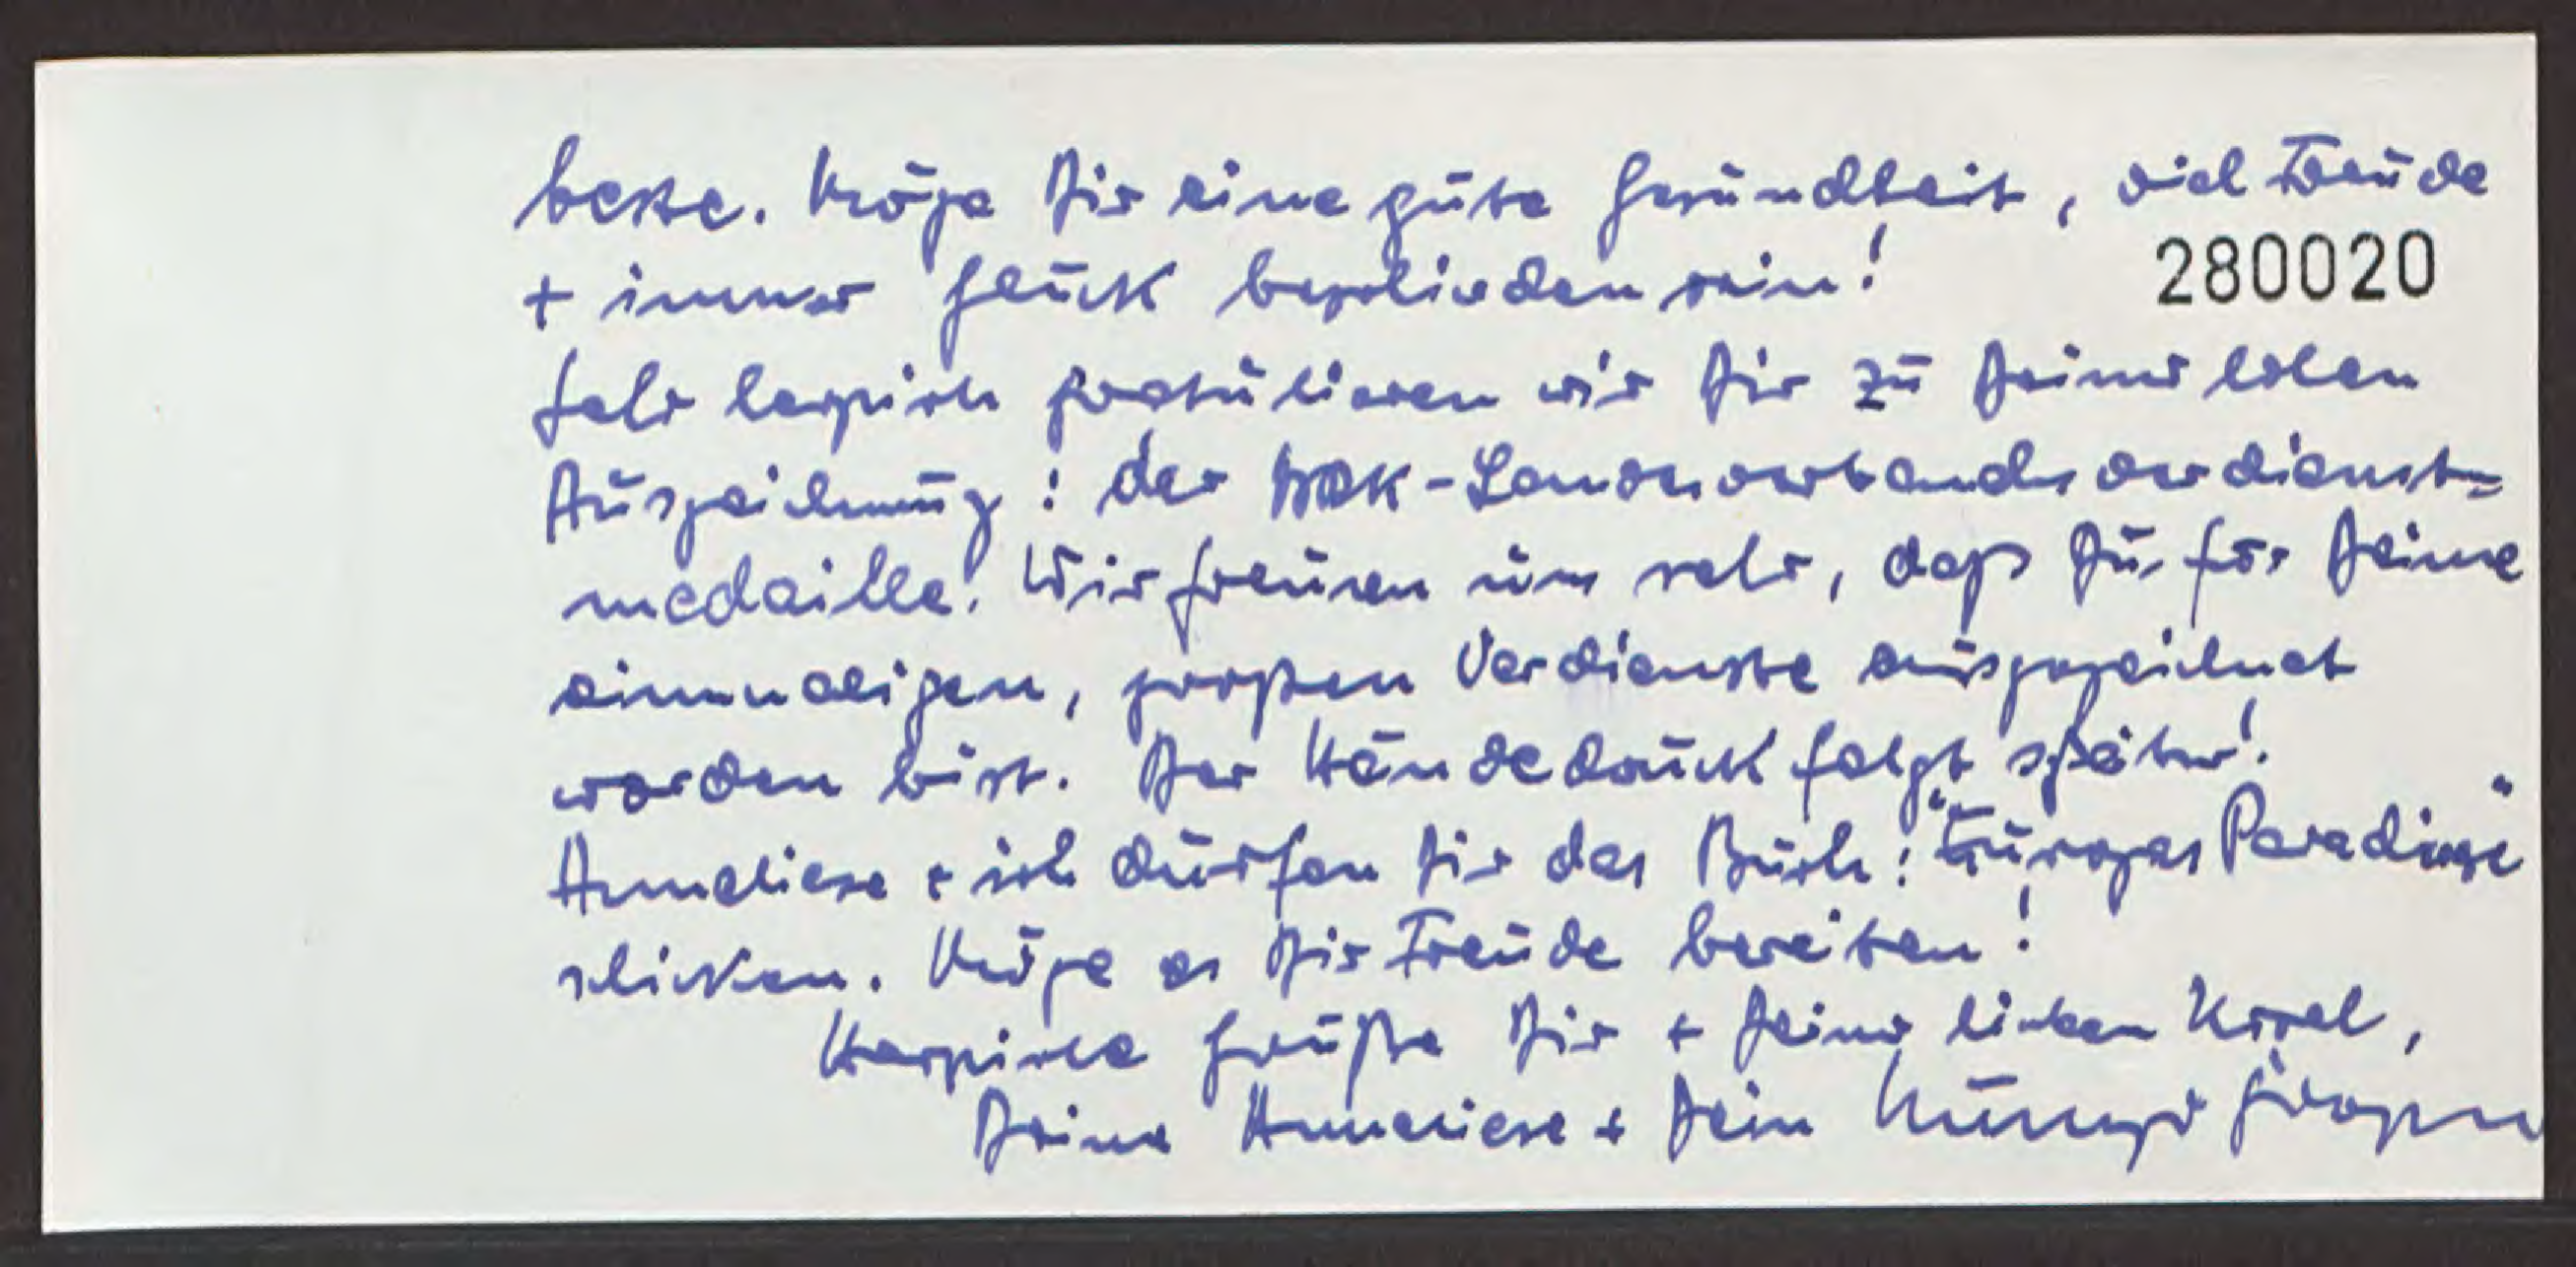 beste. Möge Dir eine gute Gesundheit, viel Freude
+ immer Glück beschieden sein!
280020
Sehr herzlich gratulieren wir Dir zu Deiner hohen
Auszeichnung: der DRK-Landesverbandsverdienst=
medaille! Wir freuen uns sehr, daß Du für Deine
einmaligen, großen Verdienste ausgezeichnet
worden bist. Der Händedruck folgt später!
Anneliese + ich dürfen Dir das Buch: "Europas Paradiese"
schicken. Möge es Dir Freude bereiten!
Herzliche Grüße Dir + Deiner lieben
Deine Anneliese + Dein